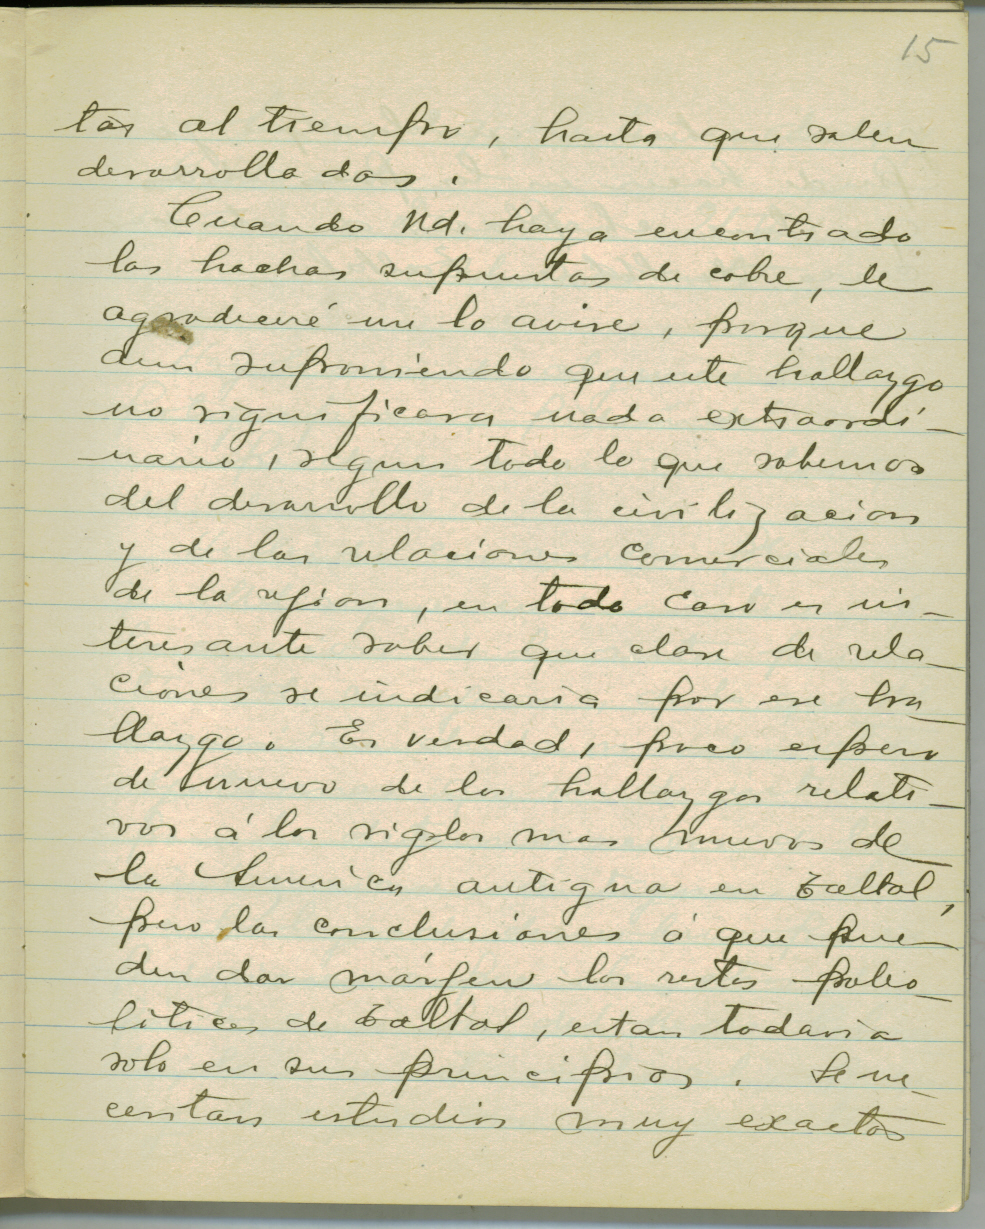 15
tas al tiempo, hasta que salen
desarrolladas.
Cuando Ud. haya encontrado
las hachas supuestas de cobre, le
agradeceré me lo avise, porque
aun suponiendo que este hallazgo
no significara nada extraordi-
nário, segun todo lo que sabemos
del desarrollo de la civilizacion
y de las relaciones comerciales
de la region, en todo caso es in-
teresante saber que clase de rela-
ciónes se indicaria por ese ha-
llazgo. Es verdad, poco espero
de nuevo de los hallazgos relati-
vos á los siglos mas nuevos de
la America antigua en Taltal,
pero las conclusiónes á que pue-
den dar márgen los restos paleo-
liticos de Taltal, estan todavia
solo en sus principios. Se ne-
cesitan estudios muy exactos